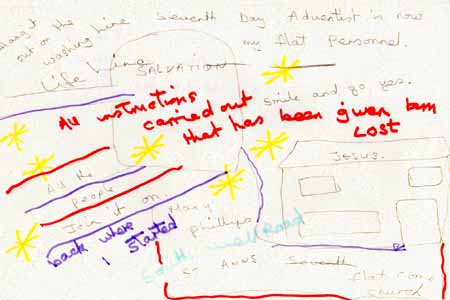 out on the
washing line
Life Line
Seventh Day Adventist is now
my flat Personnel.
SALVATION
Smile and go yes.
All instructions
carried out
that has been given bem
LOST
JESUS.
All the
people
Join it on. Mary
phillips
back where
I started
South well Road
St ANNS Seventh
flat come
church